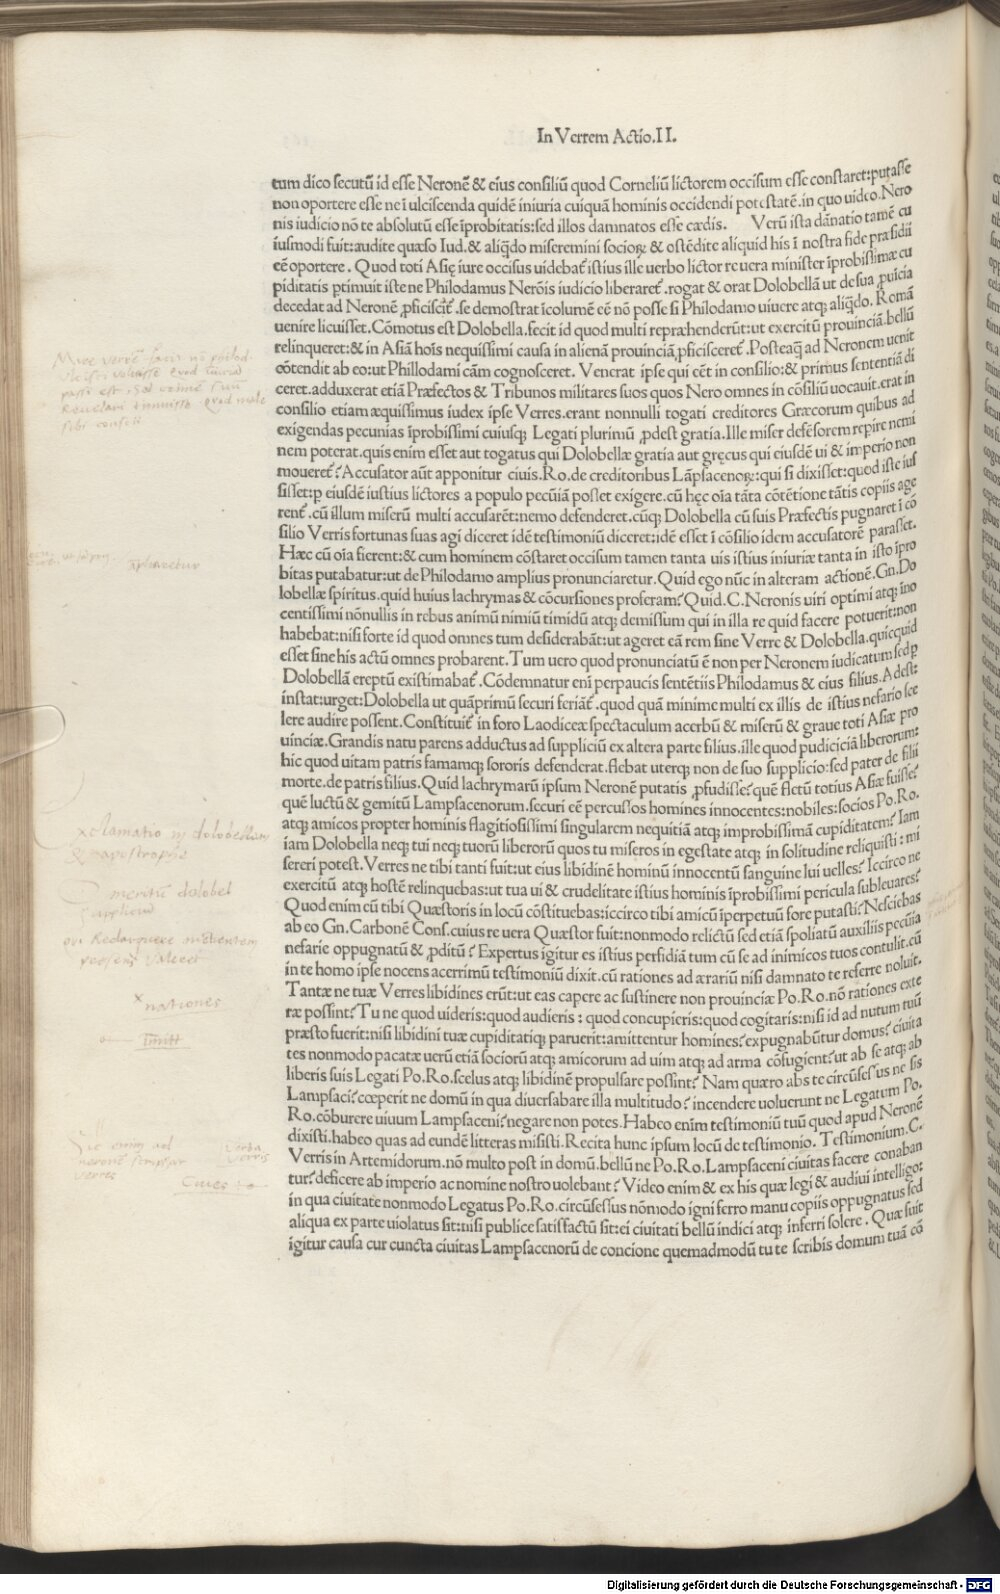 In Verrem Actio.II.
tum dico secutū id esse Neronē & eius consiliū quod Corneliū lictorem occisum esse constaret:putasse
non oportere esse ne ī ulciscenda quidē iniuria cuiquā hominis occidendi potestatē.in quo uideo.Nero
nis iudicio nō te absolutū esse īprobitatis:sed illos damnatos esse cædis. Verū ista dānatio tamē cu
iusmodi fuit:audite quæso Iud.& aliq̄do miseremini socioꝝ & ostēdite aliquid his ī nostra fide præsidii
eē oportere. Quod toti Asię iure occisus uidebat̄ istius ille uerbo lictor re uera minister īprobissimæ cu
piditatis ꝑtimuit iste ne Philodamus Nerōis iudicio liberaret̄.rogat & orat Dolobellā ut de sua ꝓuīcia
decedat ad Neronē ꝓficiscit̄.se demostrat īcolumē cē nō posse si Philodamo uiuere atq; aliq̄do. Romā
uenire licuisset.Cōmotus est Dolobella.fecit id quod multi repræhenderūt:ut exercitū prouinciā.bellū
relinqueret:& in Asiā hoīs nequissimi causa in alienā prouinciā ꝓficisceret̄.Posteaq̄ ad Neronem uenit
cōtendit ab eo:ut Phillodami cām cognosceret. Venerat ipse qui cēt in consilio:& primus sententiā di
ceret.adduxerat etiā Præfectos & Tribunos militares suos quos Nero omnes in cōsiliū uocauit.erat in
consilio etiam æquissimus iudex ipse Verres.erant nonnulli togati creditores Græcorum quibus ad
exigendas pecunias īprobissimi cuiusq; Legati plurimū ꝓdest gratia.Ille miser defēsorem repire nemi
nem poterat.quis enim esset aut togatus qui Dolobellæ gratia aut gręcus qui eiusdē ui & imperio non
moueret̄?Accusator aūt apponitur ciuis.Ro.de creditoribus Lāpsacenoꝝ:qui si dixisset:quod iste ius
sisset:ꝑ eiusdē iustius lictores a populo pecūiā posset exigere.cū hęc oīa tāta cōtētione tātis copiis age
rent̄.cū illum miserū multi accusarēt:nemo defenderet.cūq; Dolobella cū suis Præfectis pugnaret ī cō
silio Verris fortunas suas agi diceret idē testimoniū diceret:idē esset ī cōsilio idem accusatorē parasset.
Hæc cū oīa fierent:& cum hominem cōstaret occisum tamen tanta uis istius iniuriæ tanta in isto īpro
bitas putabatur:ut de Philodamo amplius pronunciaretur.Quid ego nūc in alteram actionē.Gn.Do
lobellæ spiritus.quid huius lachrymas & cōcursiones proferam?Quid.C.Neronis uiri optimi atq; īno
centissimi nōnullis in rebus animū nimiū timidū atq; demissum qui in illa re quid facere potuerit:non
habebat:nisi forte id quod omnes tum desiderabāt:ut ageret eā rem sine Verre & Dolobella.quicquid
esset sine his actū omnes probarent.Tum uero quod pronunciatū ē non per Neronem iudicatum sed ꝑ
Dolobellā ereptū existimabat̄.Cōdemnatur enī perpaucis sentētiis Philodamus & eius filius.Adest:
instat:urget:Dolobella ut quāprimū securi feriāt̄.quod quā minime multi ex illis de istius nefario sce
lere audire possent.Constituit̄ in foro Laodiceæ spectaculum acerbū & miserū & graue toti Asiæ pro
uinciæ.Grandis natu parens adductus ad suppliciū ex altera parte filius.ille quod pudiciciā liberorum:
hic quod uitam patris famamq; sororis defenderat.flebat uterq; non de suo supplicio:sed pater de filii
morte.de patris filius.Quid lachrymarū ipsum Neronē putatis ꝓfudisse?quē fletū totius Asiæ fuisse?
quē luctū & gemitū Lampsacenorum.securi eē percussos homines innocentes:nobiles:socios Po.Ro.
atq; amicos propter hominis flagitiosissimi singularem nequitiā atq; improbissimā cupiditatem?Iam
iam Dolobella neq; tui neq; tuorū liberorū quos tu miseros in egestate atq; in solitudine reliquisti:mi
sereri potest.Verres ne tibi tanti fuit:ut eius libidinē hominū innocentū sanguine lui uelles?Iccirco ne
exercitū atq; hostē relinquebas:ut tua ui & crudelitate istius hominis īprobissimi pericula subleuares?
Quod enim cū tibi Quæstoris in locū cōstituebas:iccirco tibi amicū īperpetuū fore putasti?Nesciebas
ab eo Gn.Carbonē Cons.cuius re uera Quæstor fuit:nonmodo relictū sed etiā spoliatū auxiliis pecūia
nefarie oppugnatū & ꝓditū? Expertus igitur es istius perfidiā tum cū se ad inimicos tuos contulit.cū
in te homo ipse nocens acerrimū testimoniū dixit.cū rationes ad ærariū nisi damnato te referre noluit.
Tantæ ne tuæ Verres libidines erūt:ut eas capere ac sustinere non prouinciæ Po.Ro.nō rationes exte
ræ possint?Tu ne quod uideris:quod audieris:quod concupieris:quod cogitaris:nisi id ad nutum tuū
præsto fuerit:nisi libidini tuæ cupiditatiq; paruerit:amittentur homines?expugnabūtur domus?ciuita
tes nonmodo pacatæ uerū etiā sociorū atq; amicorum ad uim atq; ad arma cōfugient?ut ab se atq; ab
liberis suis Legati Po.Ro.scelus atq; libidinē propulsare possint? Nam quæro abs te circūsessus ne sis
Lampsaci?cœperit ne domū in qua diuersabare illa multitudo?incendere uoluerunt ne Legatum Po.
Ro.cōburere uiuum Lampsaceni?negare non potes.Habeo enim testimoniū tuū quod apud Neronē
dixisti.habeo quas ad eundē litteras misisti.Recita hunc ipsum locū de testimonio. Testimonium.C.
Verris in Artemidorum.nō multo post in domū.bellū ne Po.Ro.Lampsaceni ciuitas facere conaban
tur?deficere ab imperio ac nomine nostro uolebant?Video enim & ex his quæ legi & audiui intelligo:
in qua ciuitate nonmodo Legatus Po.Ro.circūsessus nōmodo igni ferro manu copiis oppugnatus sed
aliqua ex parte uiolatus sit:nisi publice satisfactū sit:ei ciuitati bellū indici atq; inferri solere. Quæ fuit
igitur causa cur cuncta ciuitas Lampsacenorū de concione quemadmodū tu te scribis domum tuā cō
nationes
Verba
Verris
Ciues
Digitalisierung gefördert durch die Deutsche Forschungsgemeinschaft - DFG